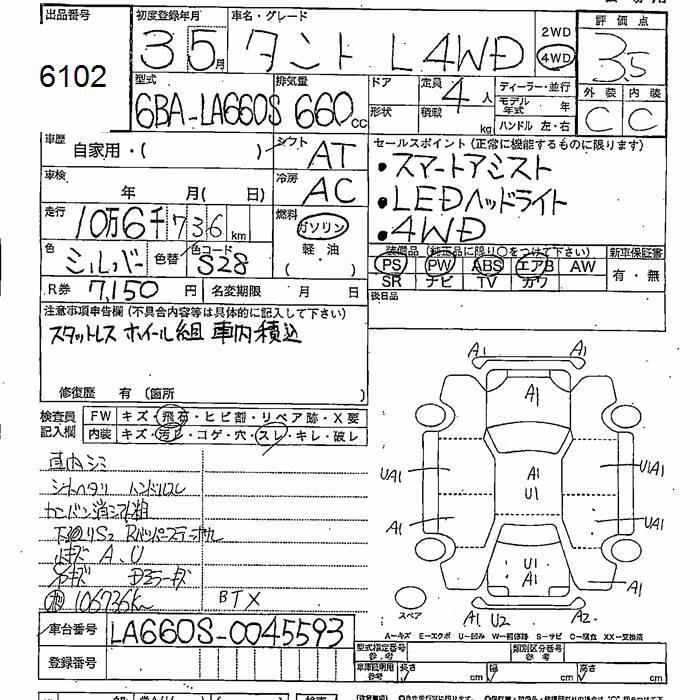 出品番号 初度登録年月 車名・グレード 評価点
6102 3 5月 タント L 4WD 2WD 4WD 3.5
型式 排気量 ドア 定員 ティーラー・並行 外装 内装
6BA-LA660S 660cc 4人 モデル年式 年 C C
形状 積載 kg ハンドル 左・右
車歴 シフト セールスポイント(正常に機能するものに限ります)
自家用・( ) AT ・スマートアシスト
車検 冷房 ・LEDヘッドライト
年 月( 日) AC ・4WD
走行 燃料
10万6千736km ガソリン
色 色替 色コード 軽・油 装備品(純正品に限り○をつけて下さい) 新車保証書
シルバー S28 ( ) PS PW ABS エアB AW 有・無
SR ナビ TV カワ
R券 7,150円 名変期限 月 日 後日品
注意事項申告欄(不具合内容等は具体的に記入して下さい)
スタットレス ホイール組 車内積込
修復歴 有(箇所 )
検査員 FW キズ・飛石・ヒビ割・リペア跡・X要
記入欄 内装 キズ・汚レ・コゲ・穴・スレ・キレ・破レ
A1 A1
A1
車内シミ
UA1 A1 UA1
シートヘタリ ハンドルスレ
U1
A1 UA1
A、U
U1
A1 A1
106736km BTX
スペア A1 U2 A2
A=キズ E=エクボ U=凹み W=補修跡 S=サビ C=腐食 XX=交換済
車台番号 LA660S-0045593
型式指定番号 参考 類別区分番号 参考
登録番号 車庫証明用 参考 長さ cm 幅 cm 高さ cm